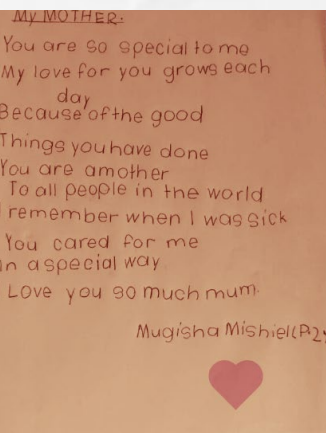 My MOTHER.
You are so special to me
My love for you grows each
day
Because of the good
Things you have done
You are amother
To all people in the world
I remember when I was sick
You cared for me
In a special way
Love you so much mum.
Mugisha Mishiel (P.2